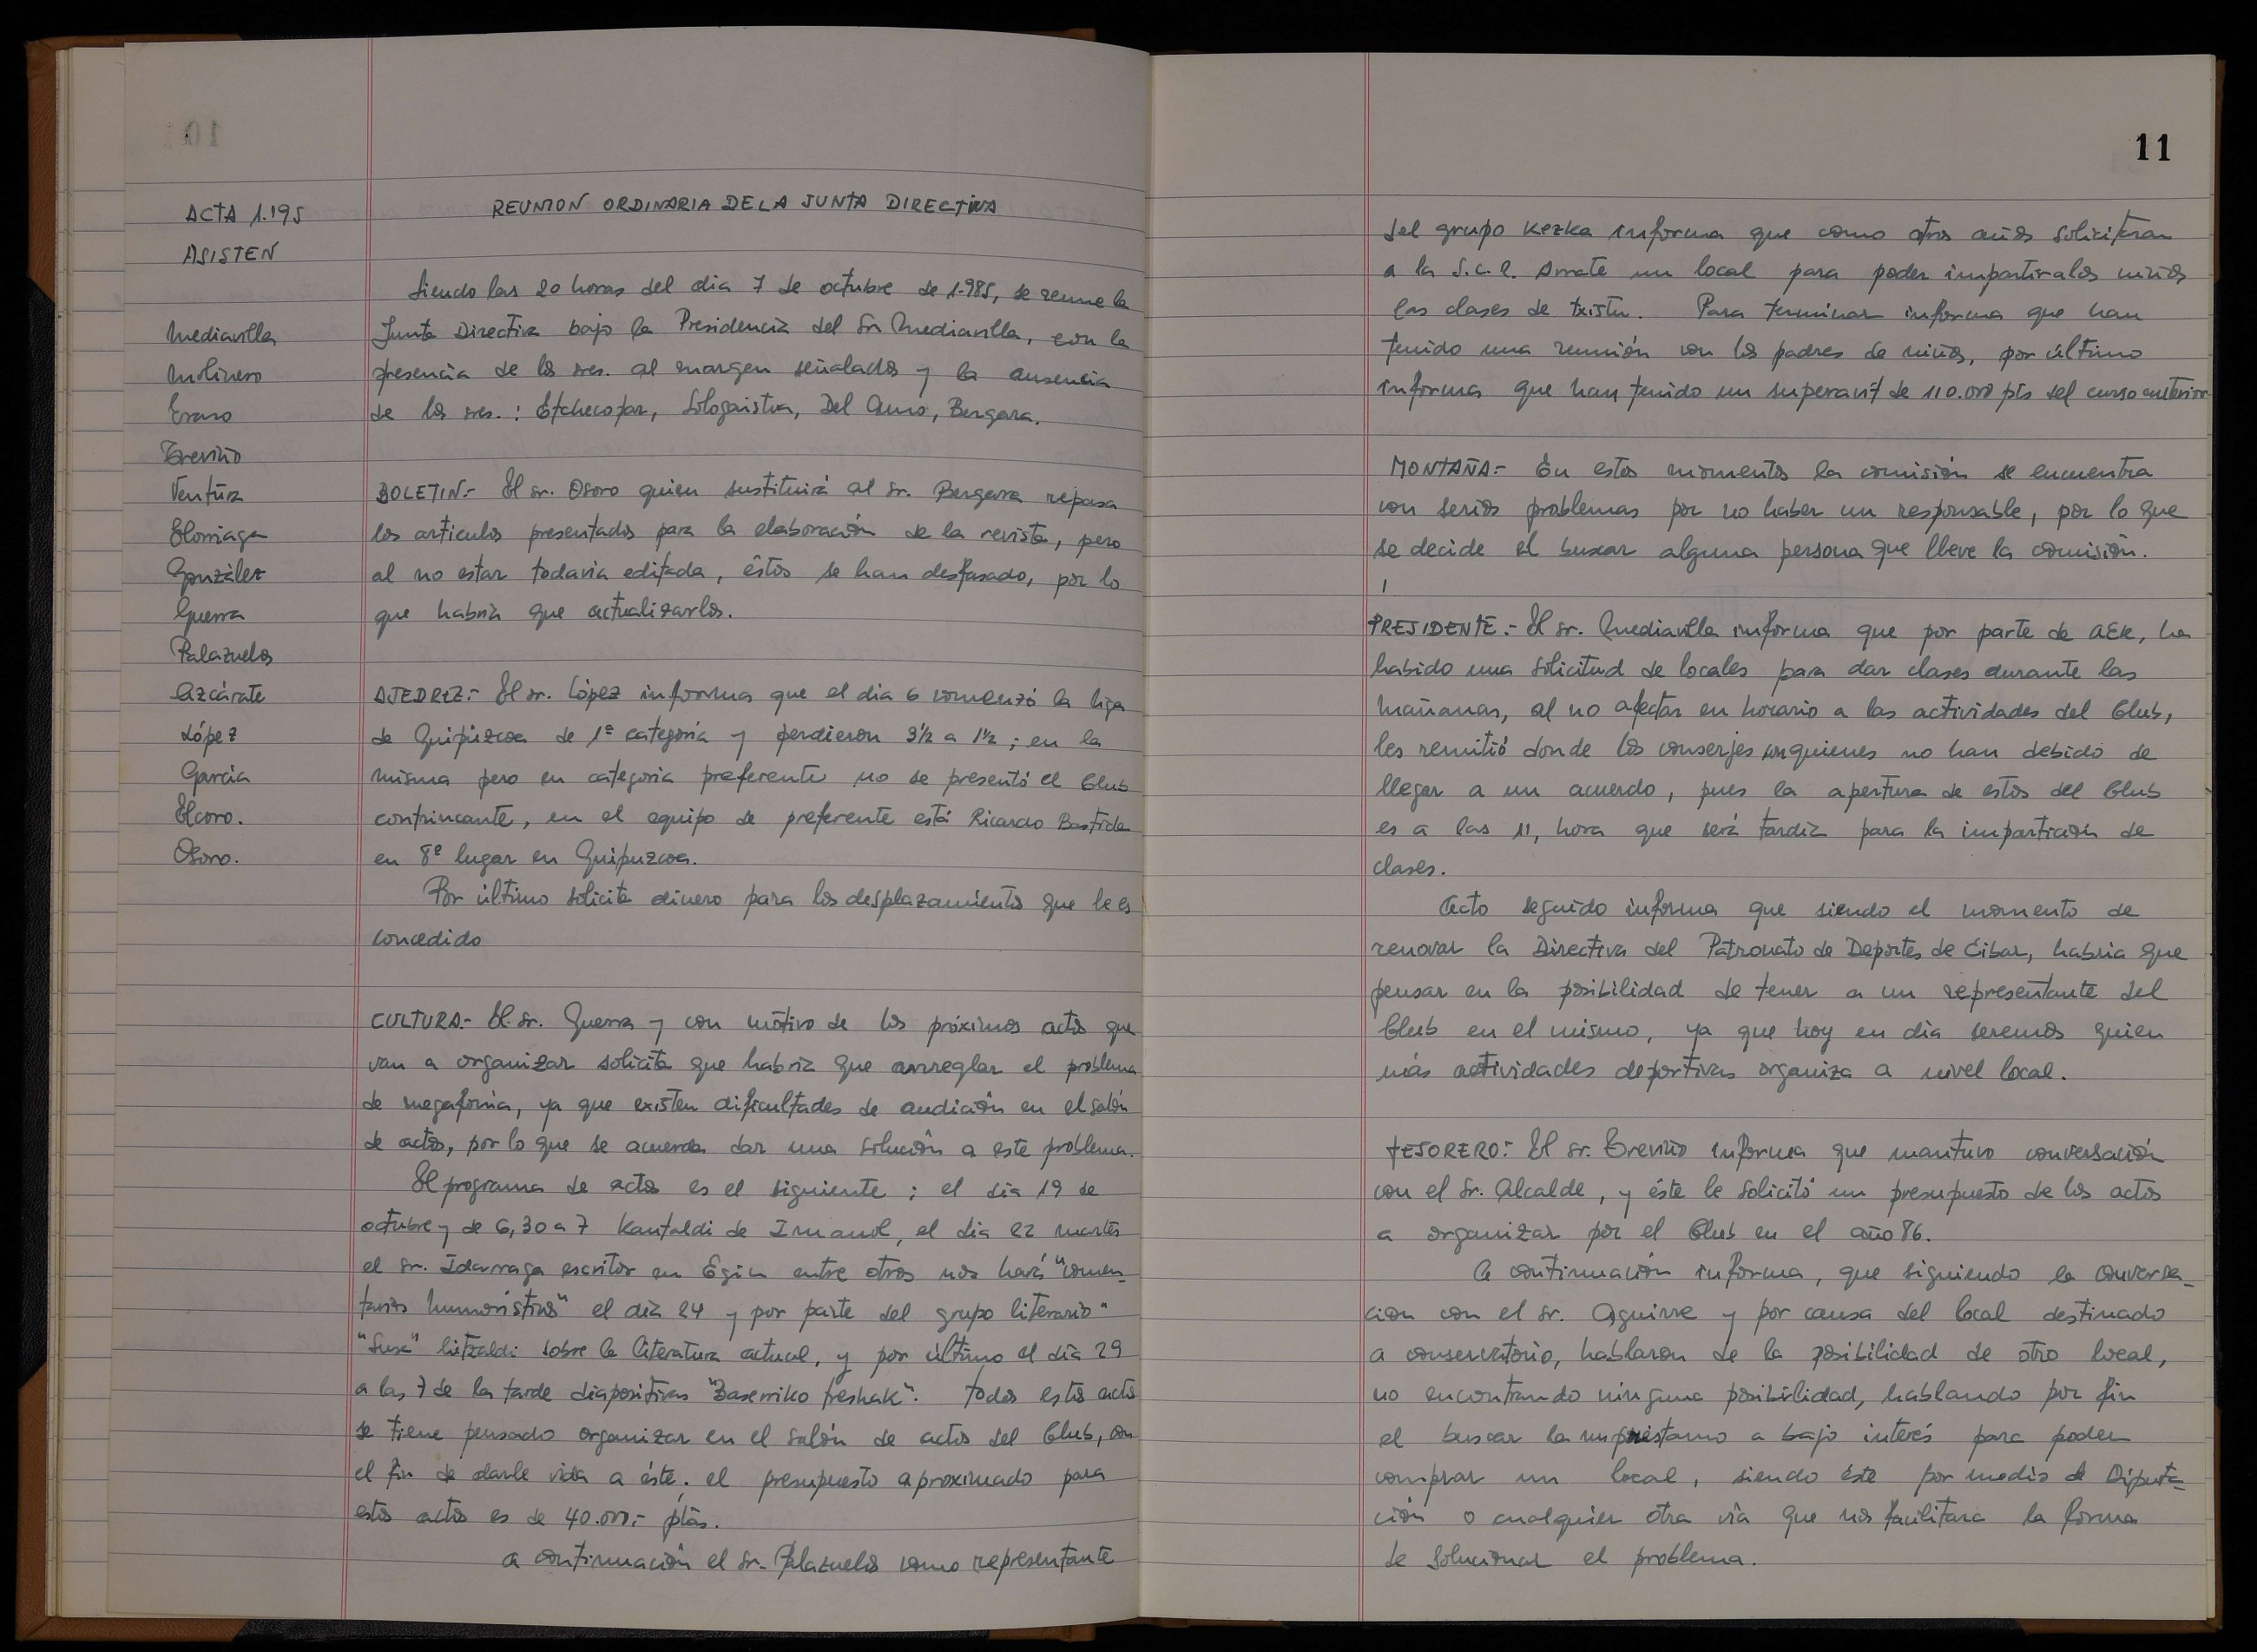 ACTA 1.195
ASISTEN
Mediavilla
Molinero
Eraso
Treviño
Ventura
Elorriaga
González
Guerra
Palazuelos
Azcárate
López
García
Elcoro.
Osoro.
REUNION ORDINARIA DE LA JUNTA DIRECTIVA
Siendo las 20 horas del dia 7 de octubre de 1.985, se reune la
Junta Directiva bajo la Presidencia del Sr. Mediavilla, con la
presencia de los sres. al margen señalados y la ausencia
de los sres. : Etchecopar, Sologaistua, Del Amo, Bergara.
BOLETIN.- El sr. Osoro quien sustituirá al sr. Bergara repasa
los articulos presentados para la elaboración de la revista, pero
al no estar todavia editada, éstos se han desfasado, por lo
que habría que actualizarlos.
AJEDREZ.- El sr. López informa que el dia 6 comenzó la liga
de Guipúzcoa de 1ª categoría y perdieron 3½ a 1½ ; en la
misma pero en categoria preferente no se presentó el Club
contrincante, en el equipo de preferente está Ricardo Bastida
en 8º lugar en Guipuzcoa.
Por último solicita dinero para los desplazamientos que le es
concedido
CULTURA.- El sr. Guerra y con motivo de los próximos actos que
van a organizar solicita que habría que arreglar el problema
de megafonía, ya que existen dificultades de audición en el salón
de actos, por lo que se acuerda dar una solución a este problema.
El programa de actos es el siguiente : el dia 19 de
octubre y de 6,30 a 7 Kantaldi de Imanol, el dia 22 martes
el sr. Idarraga escritor en Egin entre otros nos hará "comen_
tarios humorísticos" el dia 24 y por parte del grupo literario "
"Susa" hitzaldi sobre la literatura actual, y por último el dia 29
a las 7 de la tarde diapositivas "Baserriko treshak". Todos estos actos
se tiene pensado organizar en el salón de actos del Club, con
el fin de darle vida a éste; el presupuesto aproximado para
estos actos es de 40.000.- ptas.
A continuación el sr. Palazuelos como representante
11
del grupo Kezka informa que como otros años solicitaran
a la S.C.R. Arrate un local para poder impartir a los niños
las clases de txistu. Para terminar informa que han
tenido una reunión con los padres de niños, por último
informa que han tenido un superavit de 110.000 pts del curso anterior
MONTAÑA.- En estos momentos la comisión se encuentra
con serios problemas por no haber un responsable, por lo que
se decide el buscar alguna persona que lleve la comisión.
PRESIDENTE.- El sr. Mediavilla informa que por parte de AEK, ha
habido una solicitud de locales para dar clases durante las
mañanas, al no afectar en horario a las actividades del Club,
les remitió donde los conserjes con quienes no han debido de
llegar a un acuerdo, pues la apertura de estos del Club
es a las 11, hora que será tardía para la impartición de
clases.
Acto seguido informa que siendo el momento de
renovar la Directiva del Patronato de Deportes de Eibar, habria que
pensar en la posibilidad de tener a un representante del
Club en el mismo, ya que hoy en dia seremos quien
más actividades deportivas organiza a nivel local.
TESORERO.- El sr. Treviño informa que mantuvo conversación
con el Sr. Alcalde, y éste le solicitó un presupuesto de los actos
a organizar por el Club en el año 86.
A continuación informa, que siguiendo la conversa_
cion con el sr. Aguirre y por causa del local destinado
a conservatorio, hablaron de la posibilidad de otro local,
no encontrando ninguna posibilidad, hablando por fin
el buscar la un préstamo a bajo interés para poder
comprar un local, siendo éste por medio de Diputa_
ción o cualquier otra via que nos facilitara la forma
de solucionar el problema.